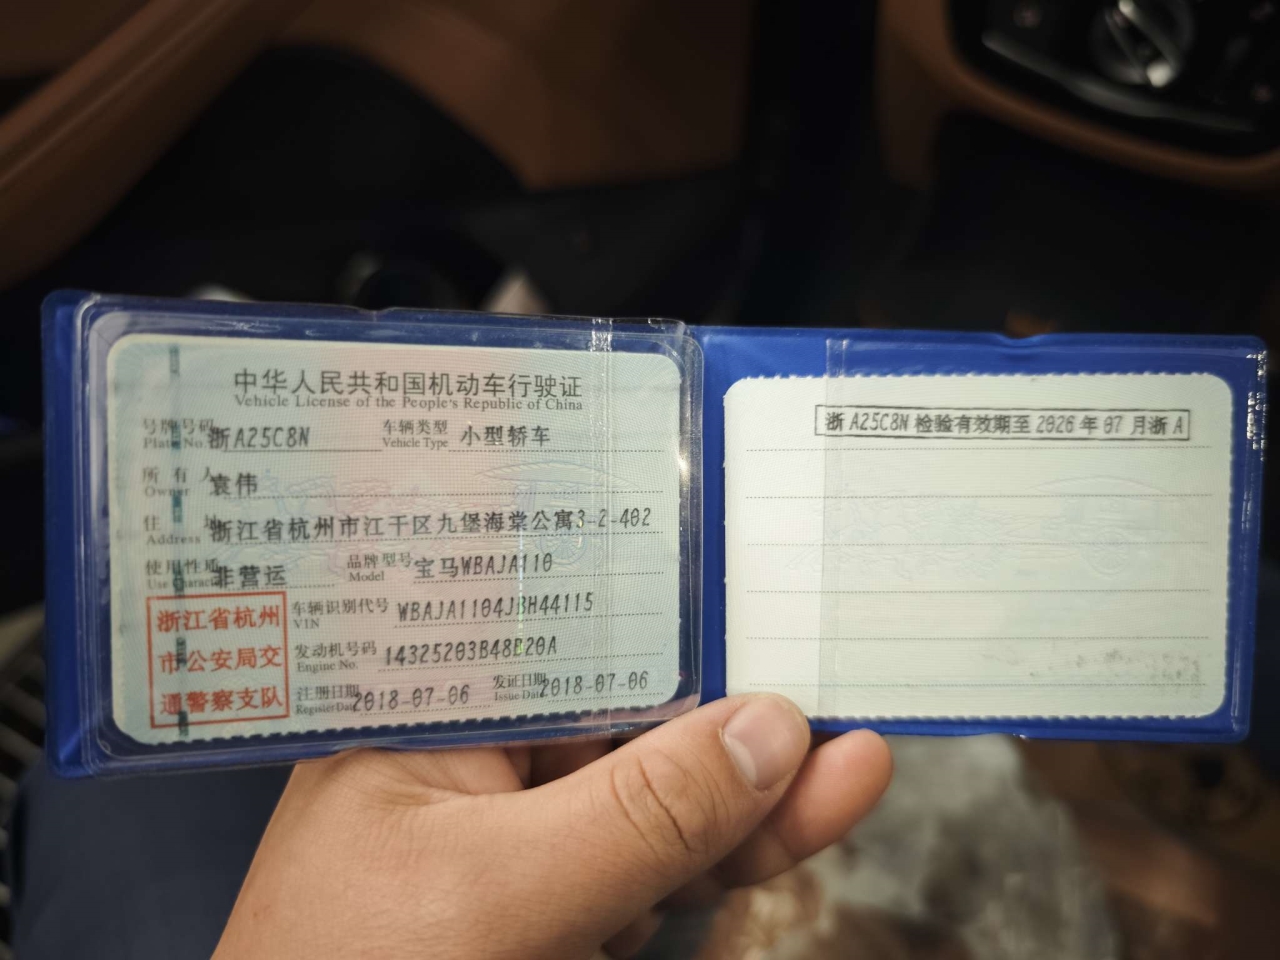 中华人民共和国机动车行驶证
Vehicle License of the People's Republic of China
号牌号码 浙A25C8N 车辆类型 小型轿车
Plate No. Vehicle Type
所有人 袁伟
Owner
住址 浙江省杭州市江干区九堡海棠公寓3-2-402
Address
使用性质 非营运 品牌型号 宝马WBAJA110
Use Character Model
浙江省杭州
市公安局交
通警察支队
车辆识别代号 WBAJA1104JBH44115
VIN
发动机号码 14325203B48B20A
Engine No.
注册日期 2018-07-06 发证日期 2018-07-06
Register Date Issue Date
浙A25C8N 检验有效期至 2026 年 07 月浙 A